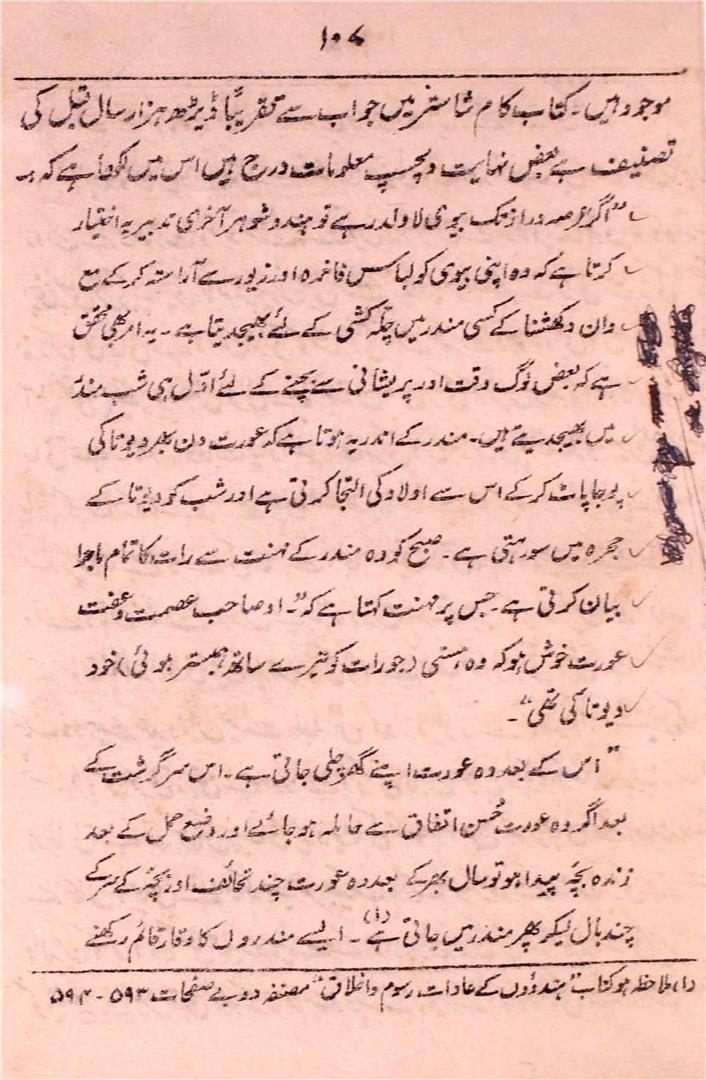 ۱۰۷
موجود ہیں۔ کتاب کام شاستر میں جو اب سے تقریباً ڈیڑھ ہزار سال قبل کی
تصنیف ہے بعض نہایت دلچسپ معلومات درج ہیں اس میں لکھا ہے کہ :۔
"اگر عرصہ دراز تک بیوی لاولد رہے تو ہندو شوہر آخری تدبیر یہ اختیار
کرتا ہے کہ وہ اپنی بیوی کو لباس فاخرہ اور زیور سے آراستہ کر کے مع
دان دکھشنا کے کسی مندر میں چلّہ کشی کے لئے بھیجدیتا ہے۔ یہ امر بھی محقق
ہے کہ بعض لوگ وقت اور پریشانی سے بچنے کے لئے اوّل ہی شب مندر
میں بھیجدیتے ہیں۔ مندر کے اندر یہ ہوتا ہے کہ عورت دن بھر دیوتا کی
پوجا پاٹ کر کے اس سے اولاد کی التجا کرتی ہے اور شب کو دیوتا کے
حجرہ میں سو رہتی ہے۔ صبح کو وہ مندر کے مہنت سے رات کا تمام ماجرا
بیان کرتی ہے۔ جس پر مہنت کہتا ہے کہ "۔ او صاحب عصمت و عفت
عورت خوش ہو کہ وہ ہستی (جو رات کو تیرے ساتھ ہمبستر ہوئی) خود
دیوتا کی تھی"۔
"اس کے بعد وہ عورت اپنے گھر چلی جاتی ہے۔ اس سرگزشت کے
بعد اگر وہ عورت حُسن اتفاق سے حاملہ ہو جائے اور وضع حمل کے بعد
زندہ بچّہ پیدا ہو تو سال بھر کے بعد وہ عورت چند تحائف اور بچّہ کے سر کے
چند بال لیکر پھر مندر میں جاتی ہے(۱)۔ ایسے مندروں کا وقار قائم رکھنے
(۱) ملاحظہ ہو کتاب "ہندوؤں کے عادات رسوم و اخلاق" مصنفہ دوبے صفحات ۵۹۳ - ۵۹۴